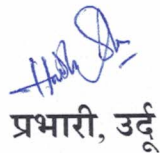 प्रभारी, उर्दू